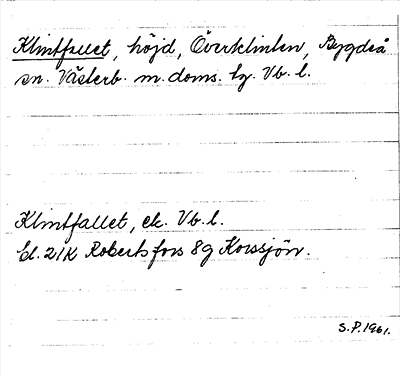 Klintfallet, höjd, Överklinten, Bygdeå
sn. Västerb. m. doms. tg. Vb. l.
Klintfallet, ek. Vb. l.
bl. 21K Robertsfors 8g Korssjön.
S.P. 1961.